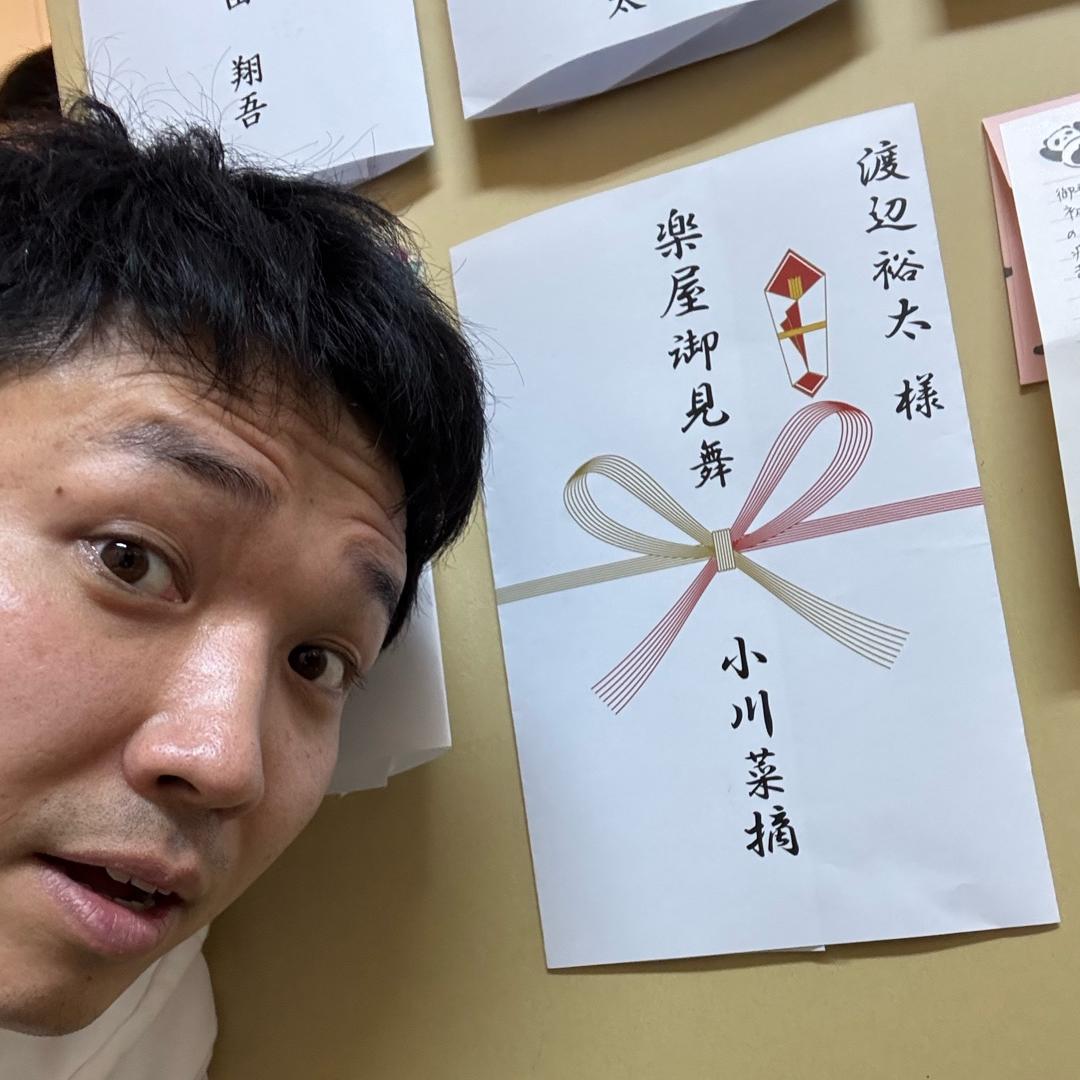 渡辺裕太 様
楽屋御見舞
小川菜摘
太
翔吾